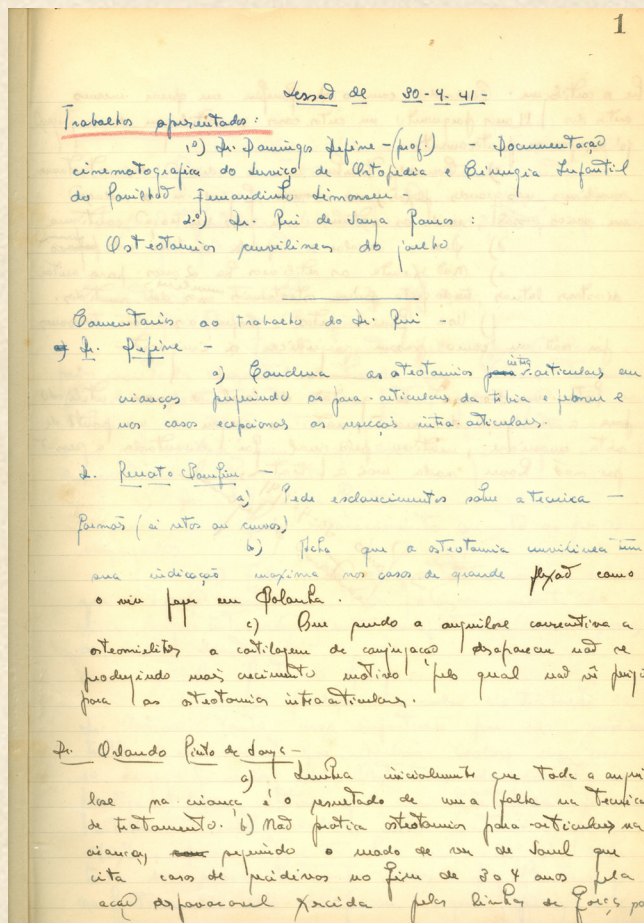 1
Sessão de 30-4-41-
Trabalhos apresentados:
1º) Dr. Domingos Define - (prof.) - Documentação
cinematografica do Serviço de Ortopedia e Cirurgia Infantil
do Pavilhão Fernandinho Simonsen -
2º) Dr. Rui de Souza Ramos:
Osteotomias curvilineas do joelho
Comentarios ao trabalho do Dr. Rui -
Dr. Define -
a) Condena as osteotomias intra-articulares em
crianças preferindo as para-articulares da tibia e femur e
nos casos ecepcionais as resecções intra-articulares.
Dr. Renato Bomfim -
a) Pede esclarecimentos sobre a tecnica -
(si retos ou curvos)
b) Acha que a osteotomia curvilinea tem
sua indicação maxima nos casos de grande flexão como
o viu fazer em Bolonha.
c) Que sendo a anquilose consecutiva a
osteomielites a cartilagem de conjugação desaparece não se
produzindo mais crecimento motivo pelo qual não vê
para as osteotomias intraarticulares.
Dr. Orlando Pinto de Souza -
a) Lembra inicialmente que toda a anqui
lose na criança é o resultado de uma falha na tecnica
de tratamento. b) Não pratica osteotomias para-articulares na
criança seguindo o modo de ver de que
cita casos de recidivas no fim de 3 a 4 anos pela
ação desfavoravel exercida pelas linhas de força